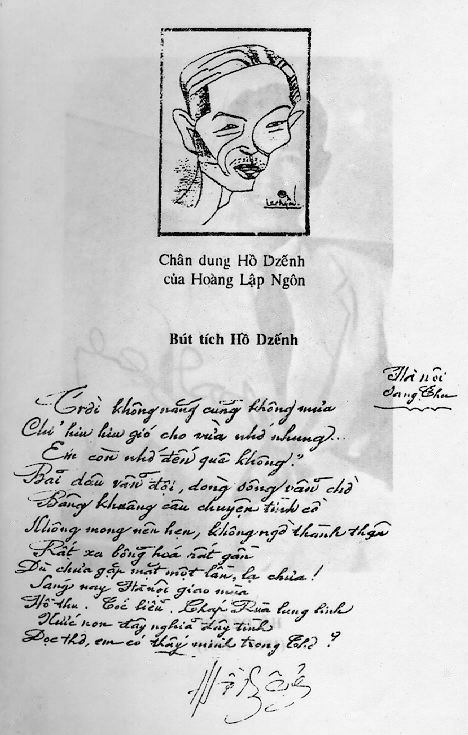 Chân dung Hồ Dzếnh
của Hoàng Lập Ngôn
Bút tích Hồ Dzếnh
Hà nội
Sang Thu
Trời không nắng cũng không mưa
Chỉ hiu hiu gió cho vừa nhớ nhung...
Em còn nhớ đến quê không?
Bãi dâu vẫn đợi, dòng sông vẫn chờ
Bâng khuâng câu chuyện tình cờ
Không mong nên hẹn, không ngờ thành thân
Rất xa bỗng hoá rất gần
Dù chưa gặp mặt một lần, lạ chưa!
Sáng nay Hà nội giao mùa
Hồ thu. Tóc liễu. Tháp Rùa lung linh
Nước non đầy nghĩa đầy tình
Đọc thơ, em có thấy mình trong Thơ?
Hồ Dzếnh